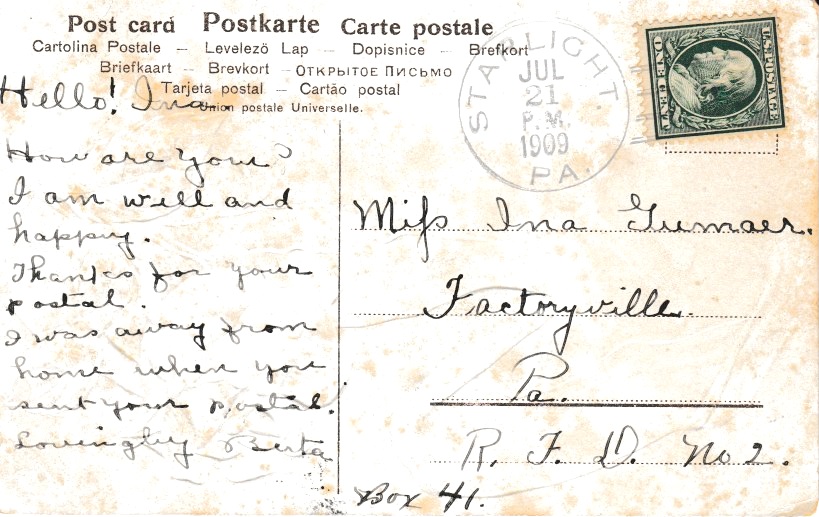 Post card Postkarte Carte postale
Cartolina Postale – Levelezö Lap – Dopisnice – Brefkort
Briefkaart – Brevkort – ОТКРЫТОЕ ПИСЬМО
Tarjeta postal – Cartão postal
Union postale Universelle.
STARLIGHT.
JUL
21
P.M.
1909
PA.
U.S. POSTAGE
ONE CENT
Hello! Ina.
How are you?
I am well and
happy.
Thanks for your
postal.
I was away from
home when you
sent your postal.
Lovingly Berta
Miss Ina Gumaer.
Factoryville.
Pa.
R. F. D. No 2.
Box 41.